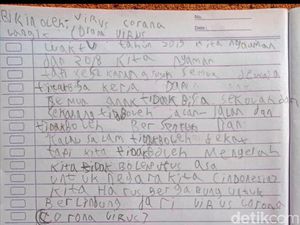 BIKIN OLEH: VIRUS CORONA
CORONA VIRUS
No.:
Date:
Waktu tahun 2019 kita nyaman
dan 2018 kita nyaman
tapi sekarang semua
tidak bisa kerja dan
semua anak tidak bisa sekolah dan
sekarang tidak boleh jalan-jalan dan
tidak boleh bersentuh dan
kalau salam tidak boleh dekat
tapi kita tidak boleh mengeluh
kita tidak boleh putus asa
untuk negara kita (indonesia)
kita harus bergabung untuk
berlindung dari virus corona
(corona virus)
detikcom